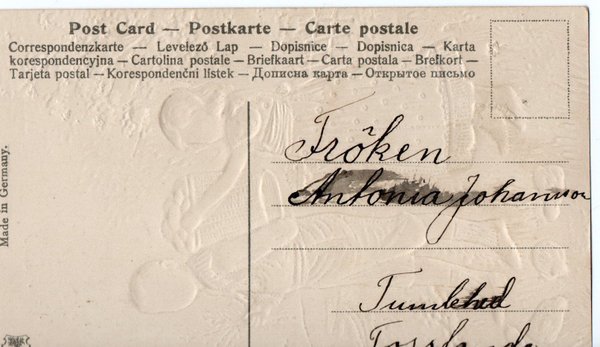 Post Card — Postkarte — Carte postale
Correspondenzkarte — Levelező Lap — Dopisnice — Dopisnica — Karta
korespondencyjna — Cartolina postale — Briefkaart — Carta postala — Brefkort —
Tarjeta postal — Korespondenční lístek — Дописна карта — Открытое письмо
Made in Germany.
Fröken
Antonia Johansson
Tumlehed
Torslanda